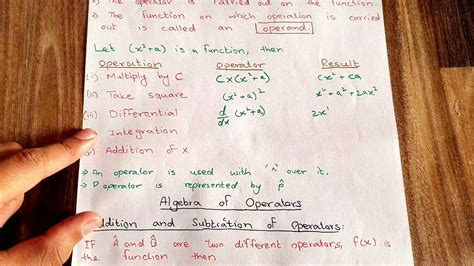 The operator is carried out on the function.
The function on which operation is carried
out is called an operand.
Let (x²+a) is a function, then
Operation Operator Result
(i) Multiply by C C×(x²+a) Cx²+Ca
(ii) Take square (x²+a)² x⁴+a²+2ax²
(iii) Differential d/dx (x²+a) 2x¹
Integration
(v) Addition of x
⇒ An operator is used with '^' over it.
⇒ P operator is represented by p̂
Algebra of Operators
Addition and Subtration of Operators:
IF Â and B̂ are two different operators, f(x) is
the function then